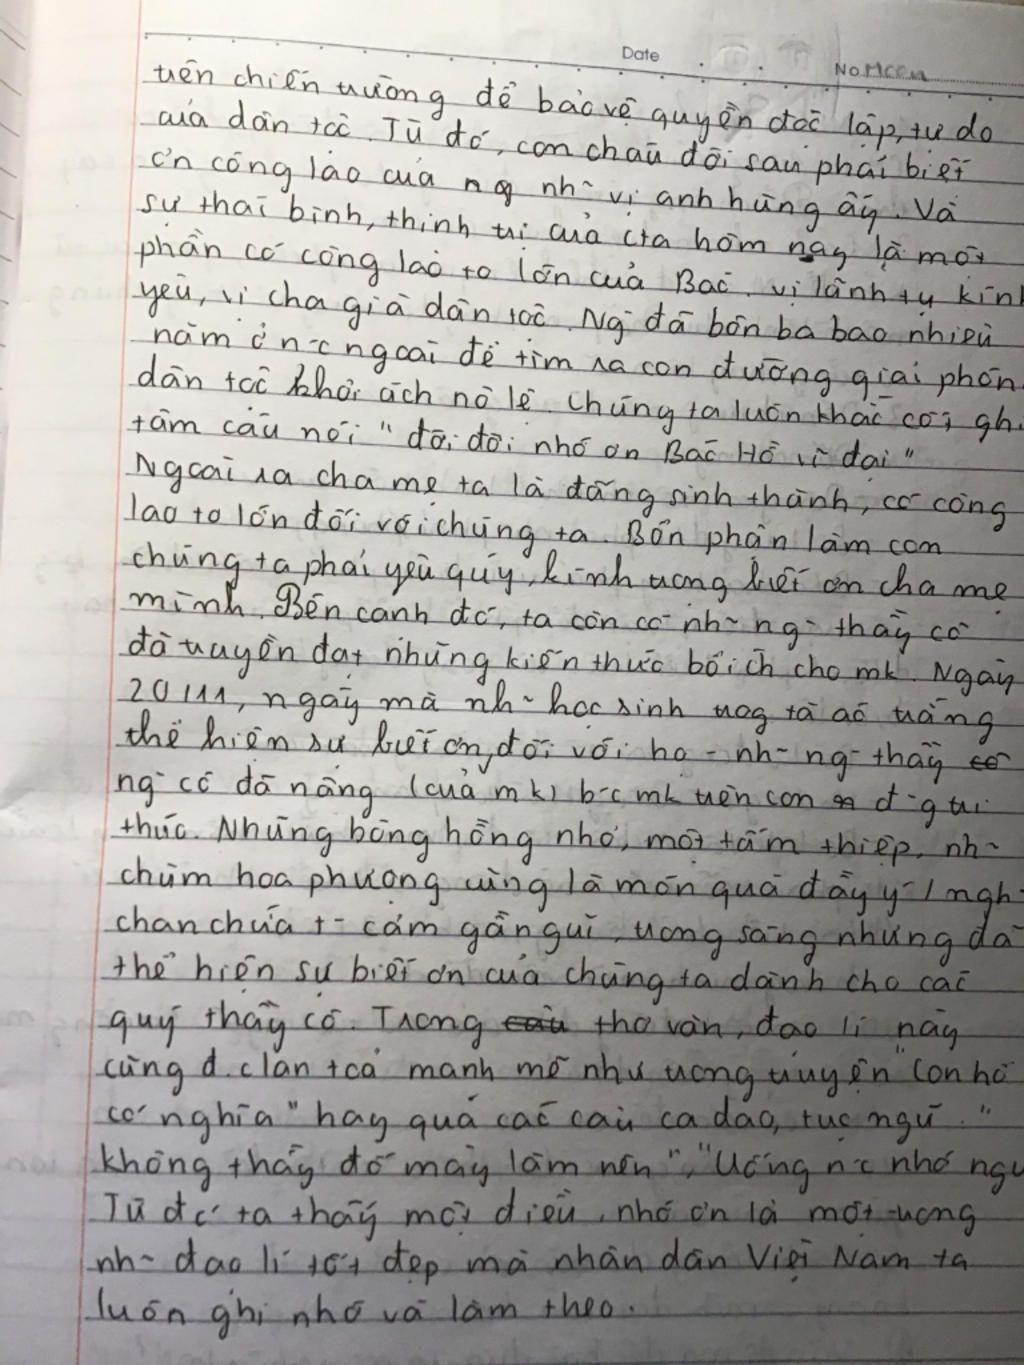 Date No.
trên chiến trường để bảo vệ quyền độc lập, tự do
của dân tộc. Từ đó, con cháu đời sau phải biết
ơn công lao của nh~ vị anh hùng ấy. Và
sự thái bình, thịnh trị của cta hôm nay là một
phần có công lao to lớn của Bác. vị lãnh tụ kính
yêu, vị cha già dân tộc. Ng đã bôn ba bao nhiêu
năm ở n-c ngoài để tìm ra con đường giải phón
dân tộc khỏi ách nô lệ. Chúng ta luôn khắc cốt gh
tâm câu nói "đời đời nhớ ơn Bác Hồ vĩ đại"
Ngoài ra cha mẹ ta là đấng sinh thành, có công
lao to lớn đối với chúng ta. Bổn phận làm con
chúng ta phải yêu quý, kính trọng biết ơn cha mẹ
mình. Bên cạnh đó, ta còn có nh~ ng- thầy cô
đã truyền đạt những kiến thức bổ ích cho mk. Ngày
20/11, ngày mà nh~ học sinh trog tà áo trắng
thể hiện sự biết ơn đối với họ - nh~ ng- thầy
ng- cô đã nâng (của mk) b-c mk trên con đ-g tri
thức. Những bông hồng nhỏ, một tấm thiệp, nh~
chùm hoa phượng cũng là món quà đầy ý / ngh
chan chứa t- cảm gần gũi, trong sáng nhưng đã
thể hiện sự biết ơn của chúng ta dành cho các
quý thầy cô. Trong thơ văn, đạo lí này
cũng đ.c lan tỏa mạnh mẽ như trong truyện "Con hổ
có nghĩa" hay qua các câu ca dao, tục ngữ. "
không thầy đố mày làm nên", "Uống n-c nhớ ngu
Từ đó ta thấy một điều, nhớ ơn là một trong
nh~ đạo lí tốt đẹp mà nhân dân Việt Nam ta
luôn ghi nhớ và làm theo.